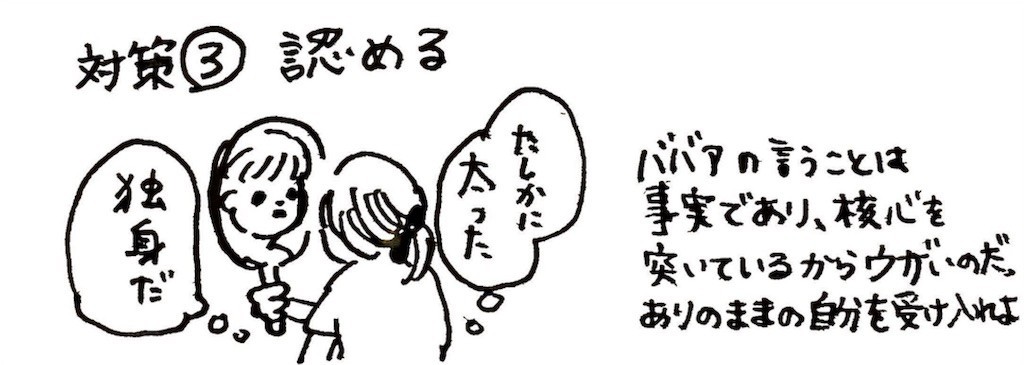 対策③ 認める
たしかに
太った
独身だ
ババアの言うことは
事実であり、核心を
突いているからウザいのだ。
ありのままの自分を受け入れよ